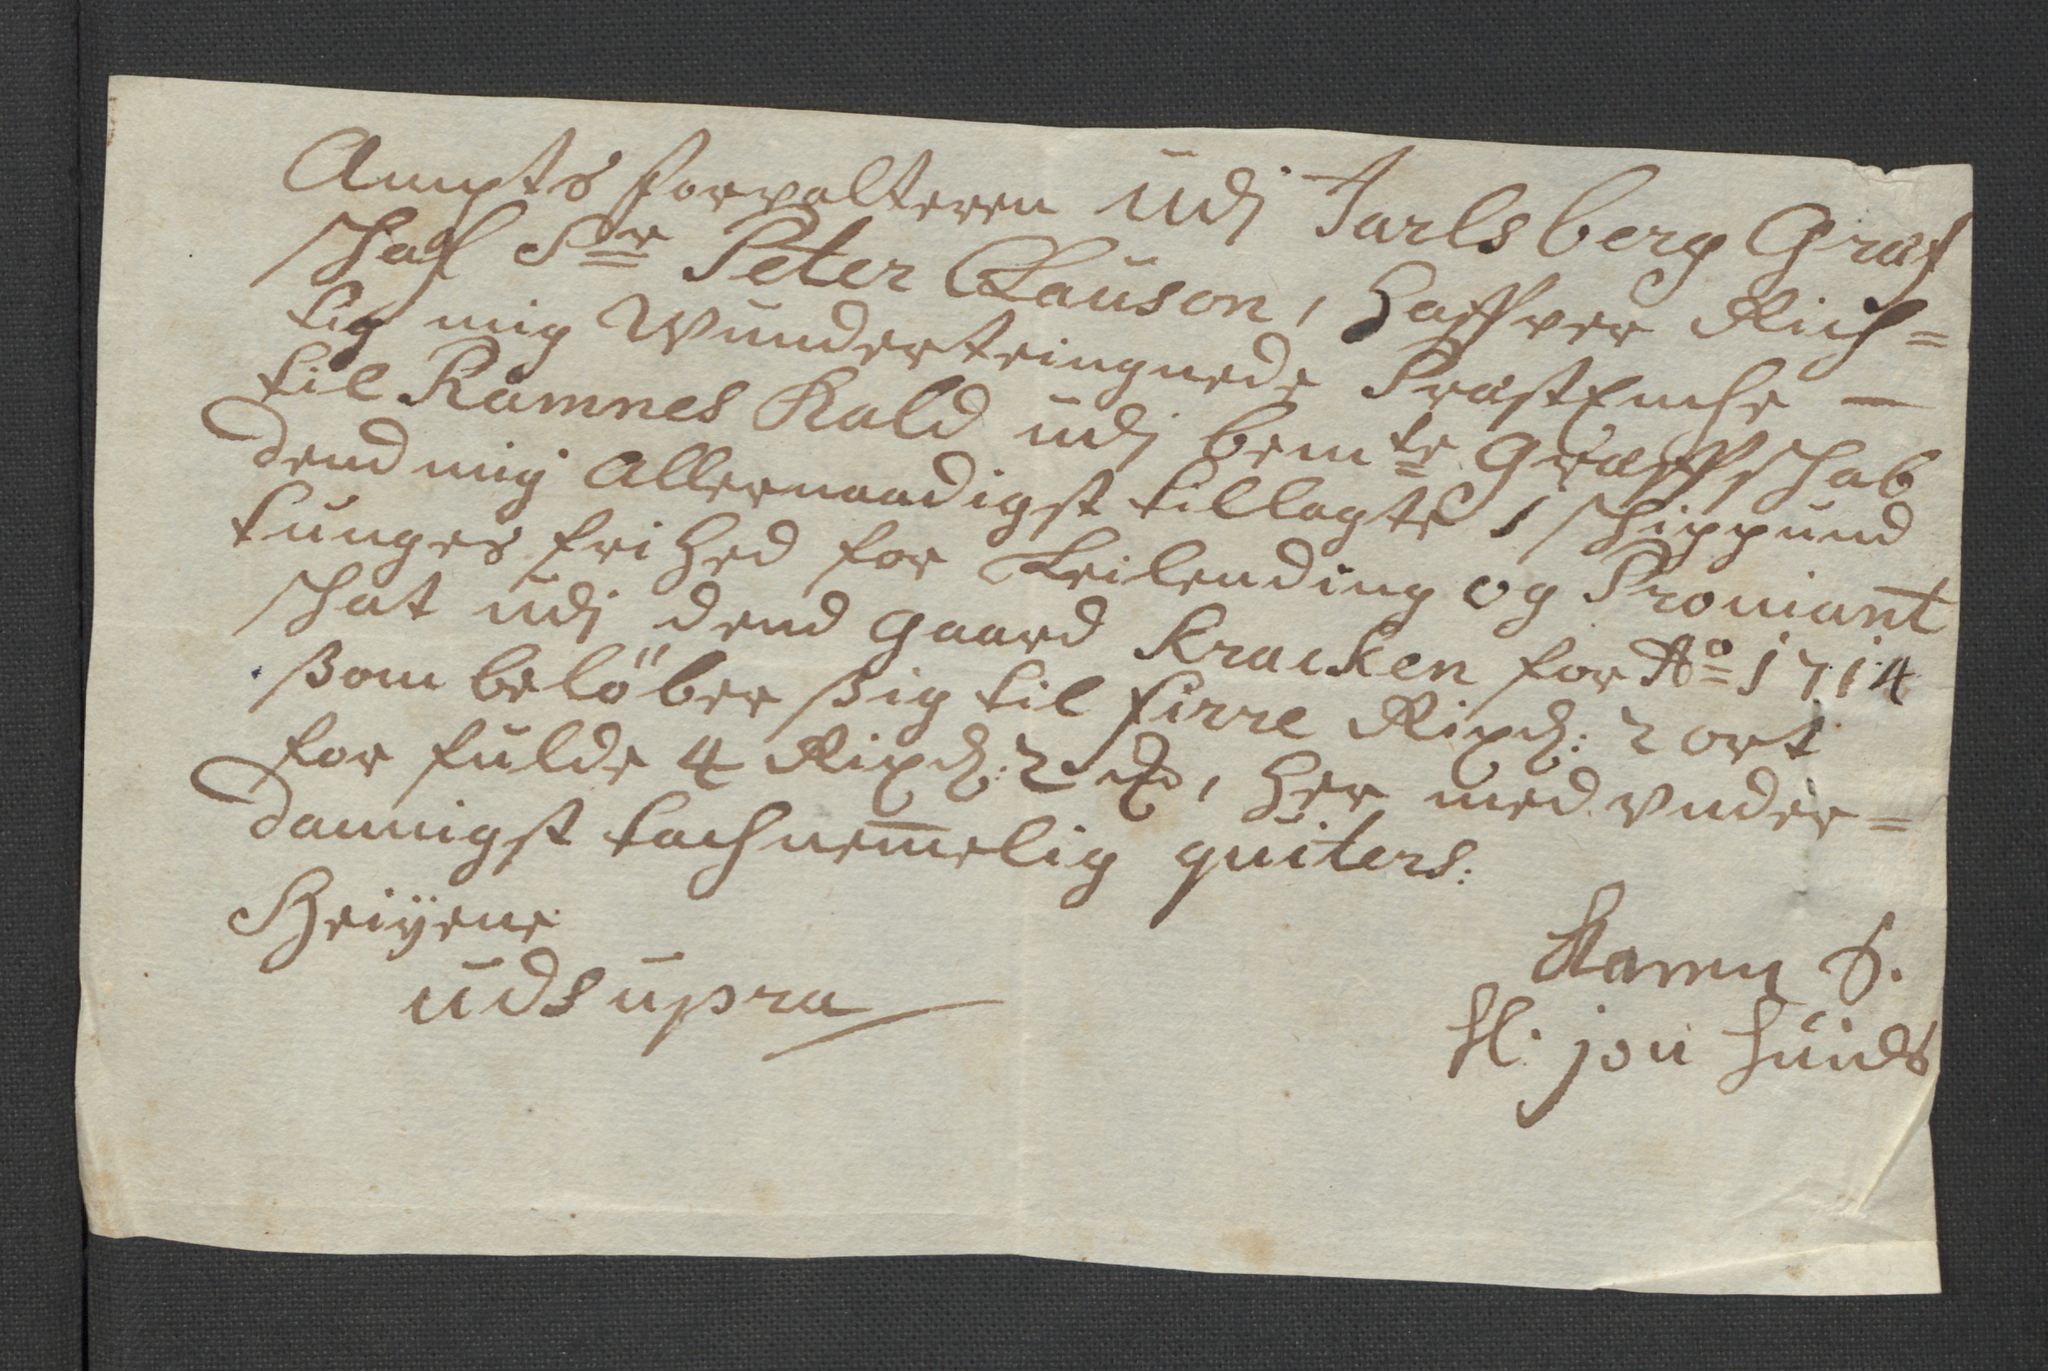 Ampts forvalteren udj Jarlsberg Græf
schaf Sr Peter Clauson, Haffver Rich=
tig mig Wunderteingnede PræstEnche —
til Ramnes Kald udj bemte Græffschab
dend mig Allernaadigst tillagte 1 schippund
tunges frihed for Leilending og Proviant
schat udj dend gaard Kracken for Ao 1714
ßom belöber ßig til firre Rixd: 2 ort
for fulde 4 Rixd: 2 , Her med vnder=
dannigst tachnemelig quiters:
Heiyene
ud supra
Karen S.
Sl. jon Huids